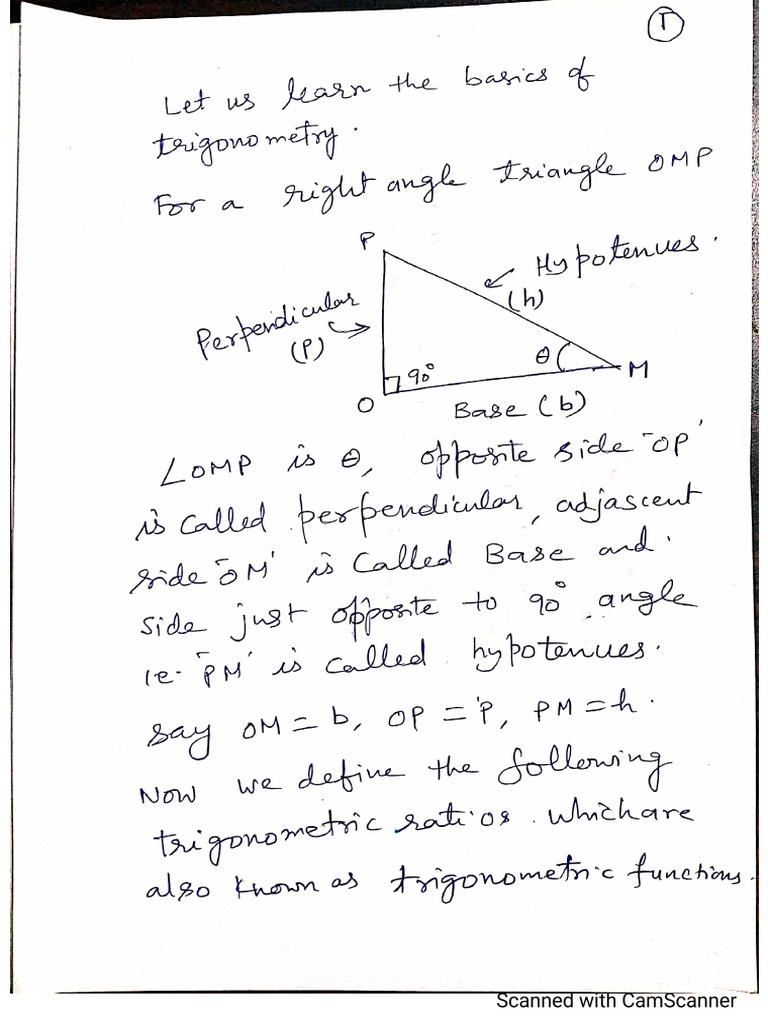 1
Let us learn the basics of
trigonometry.
For a right angle triangle OMP
P
Hypotenues.
(h)
Perpendicular
(P)
θ
90°
M
O
Base (b)
∠OMP is θ, opposite side "OP"
is called perpendicular, adjascent
side "OM" is called Base and.
side just opposite to 90° angle
ie. "PM" is called hypotenues.
say OM = b, OP = P, PM = h.
Now we define the following
trigonometric ratios. which are
also known as trigonometric functions.
Scanned with CamScanner